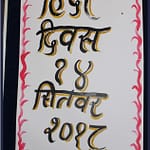 हिंदी
दिवस
१४
सितंबर
२०१८